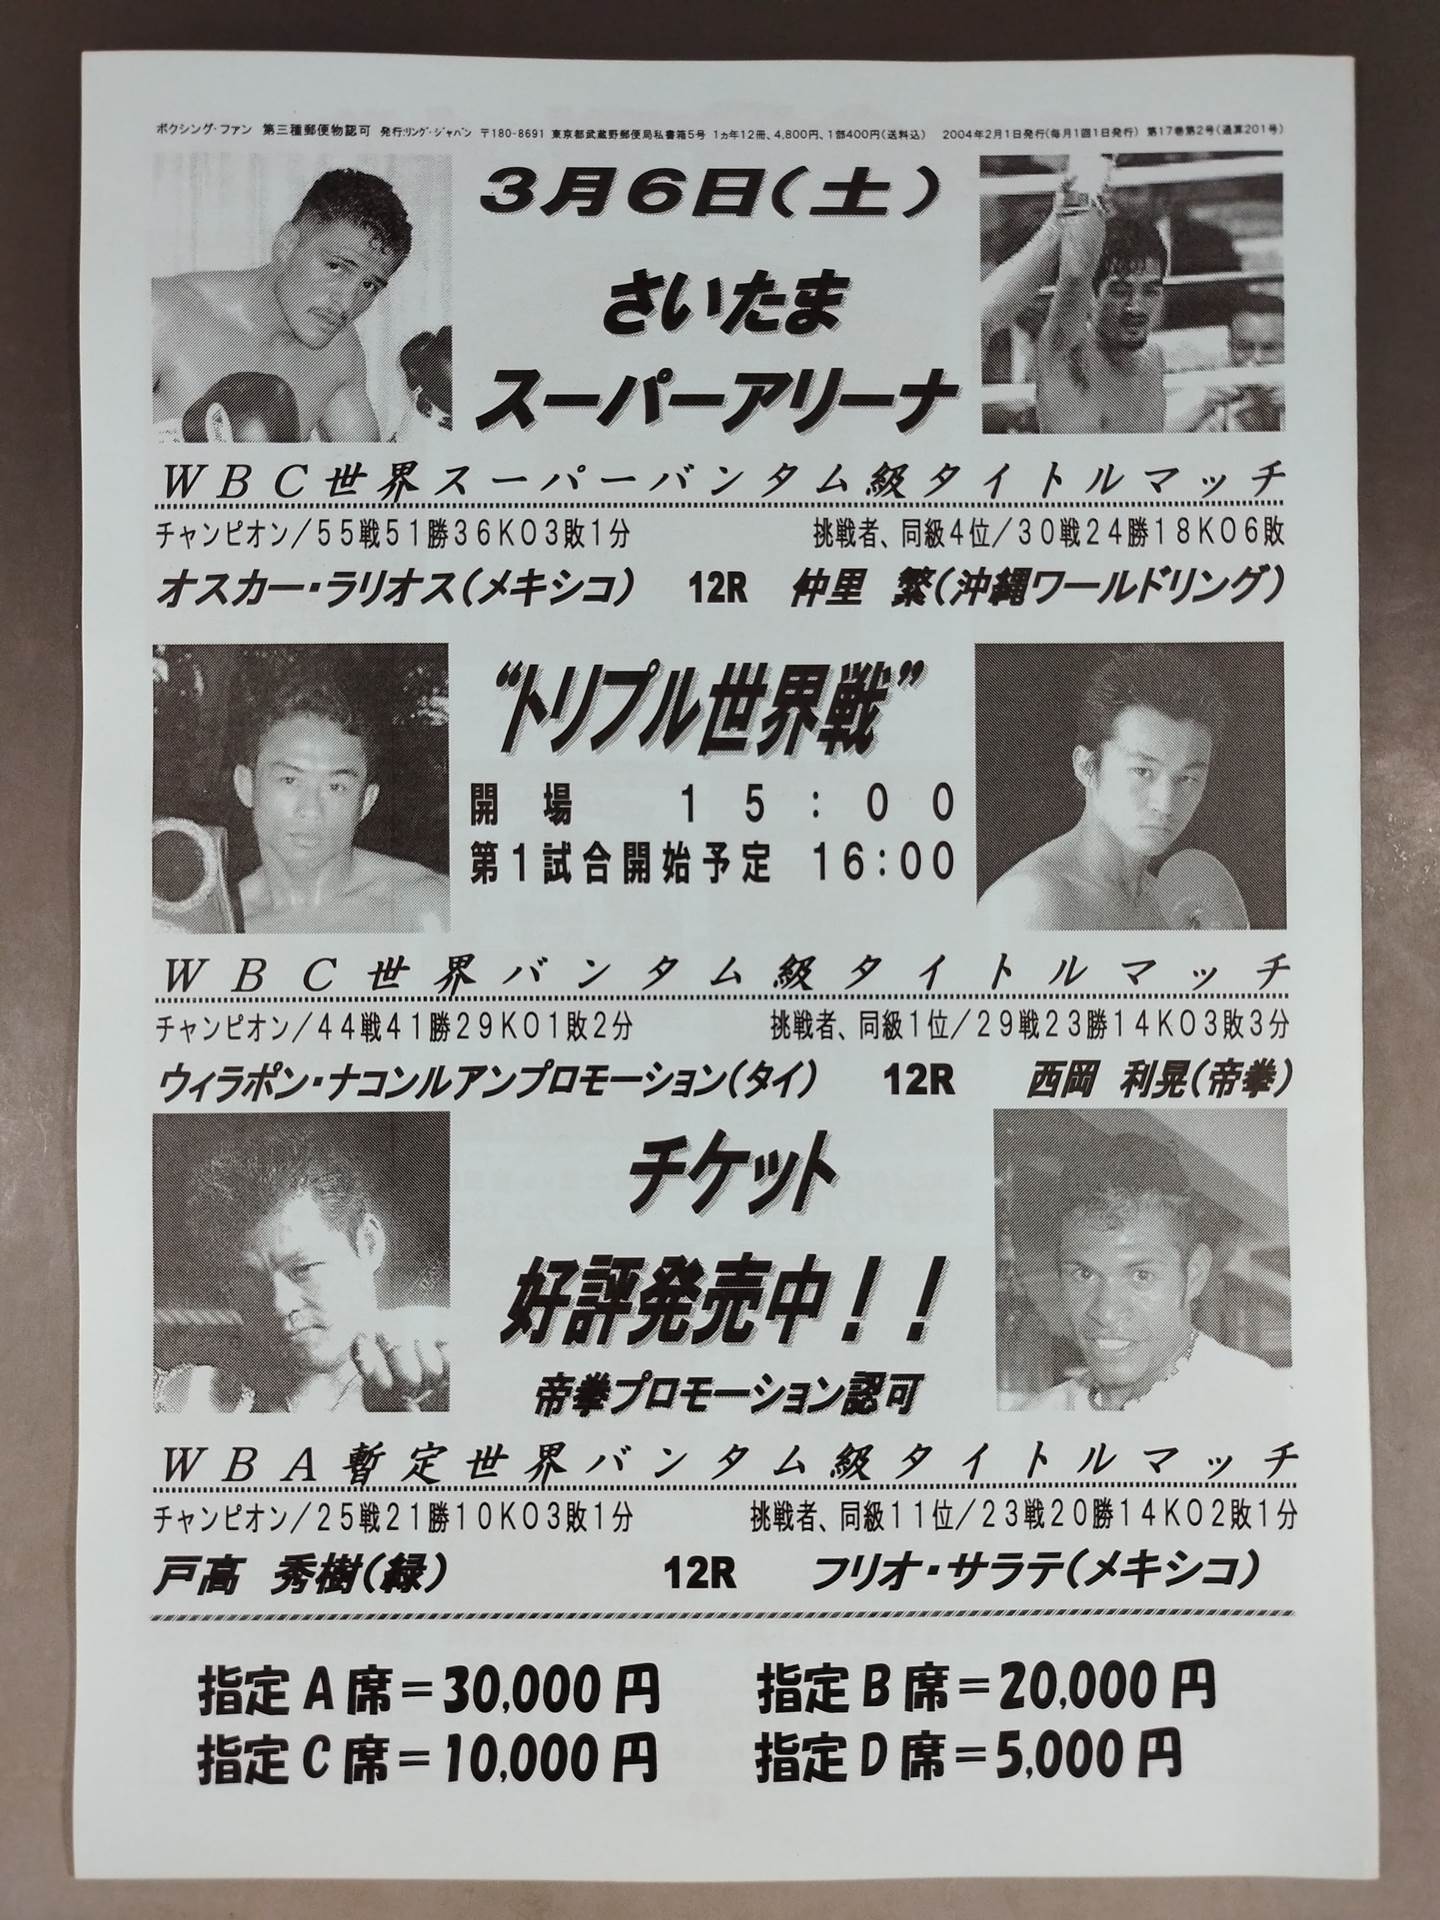 ボクシング・ファン 第三種郵便物認可 発行:リング・ジャパン 〒180-8691 東京都武蔵野郵便局私書箱5号 1ヵ年12冊、4,800円、1部400円(送料込) 2004年2月1日発行(毎月1回1日発行) 第17巻第2号(通算201号)
3月6日(土)
さいたま
スーパーアリーナ
WBC世界スーパーバンタム級タイトルマッチ
チャンピオン/55戦51勝36KO3敗1分 挑戦者、同級4位/30戦24勝18KO6敗
オスカー・ラリオス(メキシコ) 12R 仲里 繁(沖縄ワールドリング)
“トリプル世界戦”
開場 15:00
第1試合開始予定 16:00
WBC世界バンタム級タイトルマッチ
チャンピオン/44戦41勝29KO1敗2分 挑戦者、同級1位/29戦23勝14KO3敗3分
ウィラポン・ナコンルアンプロモーション(タイ) 12R 西岡 利晃(帝拳)
チケット
好評発売中!!
帝拳プロモーション認可
WBA暫定世界バンタム級タイトルマッチ
チャンピオン/25戦21勝10KO3敗1分 挑戦者、同級11位/23戦20勝14KO2敗1分
戸高 秀樹(緑) 12R フリオ・サラテ(メキシコ)
指定A席=30,000円 指定B席=20,000円
指定C席=10,000円 指定D席=5,000円